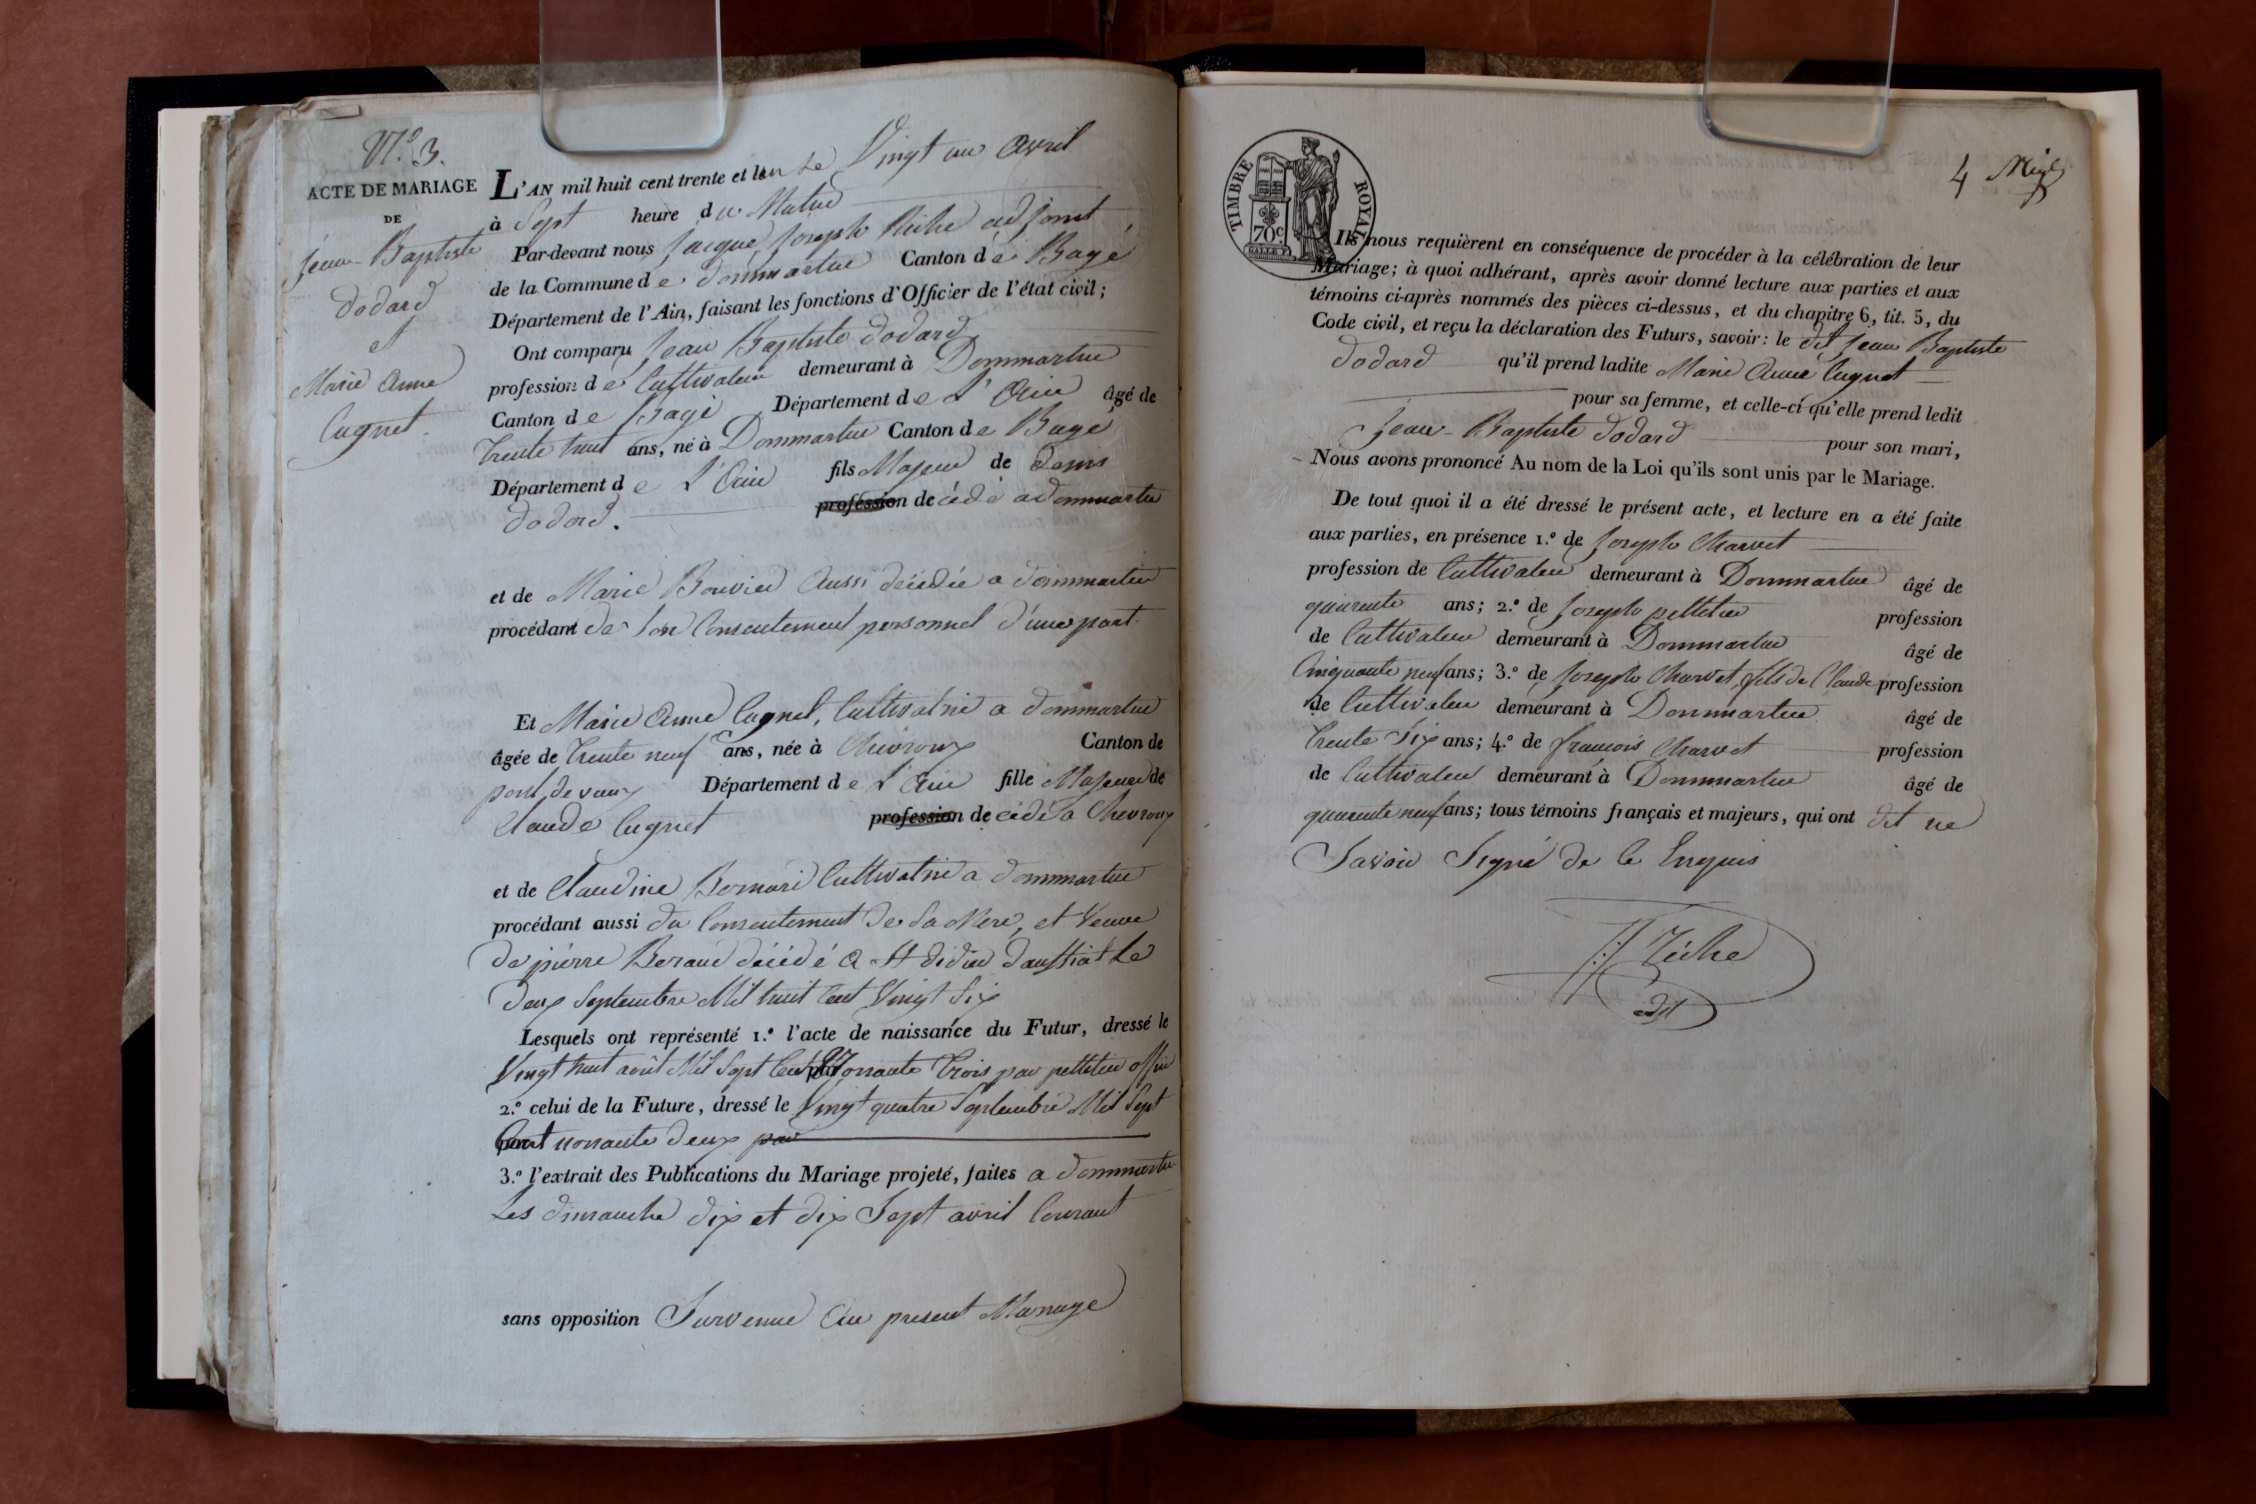 N.º 3.
ACTE DE MARIAGE
DE
Jean-Baptiste
dodard
et
Marie Anne
Cugnet
L'AN mil huit cent trente et un Le Vingt un avril
à Sept heure du Matin
Par-devant nous Jacque Joseph adjoint
de la Commune de dommartin Canton de Bagé
Département de l'Ain, faisant les fonctions d'Officier de l'état civil;
Ont comparu Jean Baptiste dodard
profession de Cultivateur demeurant à Dommartin
Canton de Bagé Département de L'Ain âgé de
trente huit ans, né à Dommartin Canton de Bagé
Département de L'Ain fils Majeur de denis
dodard. profession de cédé a dommartin
et de Marie Bouvier aussi décédée a dommartin
procédant de Son Consentement personnel d'une part
Et Marie Anne Cugnet, Cultivatrie a dommartin
âgée de trente neuf ans, née à Chevroux Canton de
pont de vaux Département de L'Ain fille Majeure de
Claude Cugnet profession de cédé a Chevroux
et de Claudine Cultivatrie a dommartin
procédant aussi du Consentement de Sa Mere, et Veuve
de pierre Beraud décédé a St didier daussiat Le
deux Septembre Mil huit Cent Vingt Six
Lesquels ont représenté 1.º l'acte de naissance du Futur, dressé le
Vingt huit août Mil Sept Cent Nonante trois par pelletier
2.º celui de la Future, dressé le Vingt quatre Septembre Mil Sept
Cent nonante deux par
3.º l'extrait des Publications du Mariage projeté, faites a dommartin
Les dimanche dix et dix Sept avril Courant
sans opposition Survenue au present Mariage
TIMBRE ROYAL
70c
4
Ils nous requièrent en conséquence de procéder à la célébration de leur
Mariage; à quoi adhérant, après avoir donné lecture aux parties et aux
témoins ci-après nommés des pièces ci-dessus, et du chapitre 6, tit. 5, du
Code civil, et reçu la déclaration des Futurs, savoir: le dit Jean Baptiste
dodard qu'il prend ladite Marie Anne Cugnet
pour sa femme, et celle-ci qu'elle prend ledit
Jean-Baptiste dodard pour son mari,
Nous avons prononcé Au nom de la Loi qu'ils sont unis par le Mariage.
De tout quoi il a été dressé le présent acte, et lecture en a été faite
aux parties, en présence 1.º de Joseph Charvet
profession de Cultivateur demeurant à Dommartin âgé de
quarente ans; 2.º de Joseph pelletier profession
de Cultivateur demeurant à Dommartin âgé de
Cinquante neuf ans; 3.º de Joseph Charvet, fils de Claude profession
de Cultivateur demeurant à Dommartin âgé de
trente Six ans; 4.º de françois Charvet profession
de Cultivateur demeurant à Dommartin âgé de
quarente neuf ans; tous témoins français et majeurs, qui ont dit ne
Savoir Signé de ce Enquis
adjt